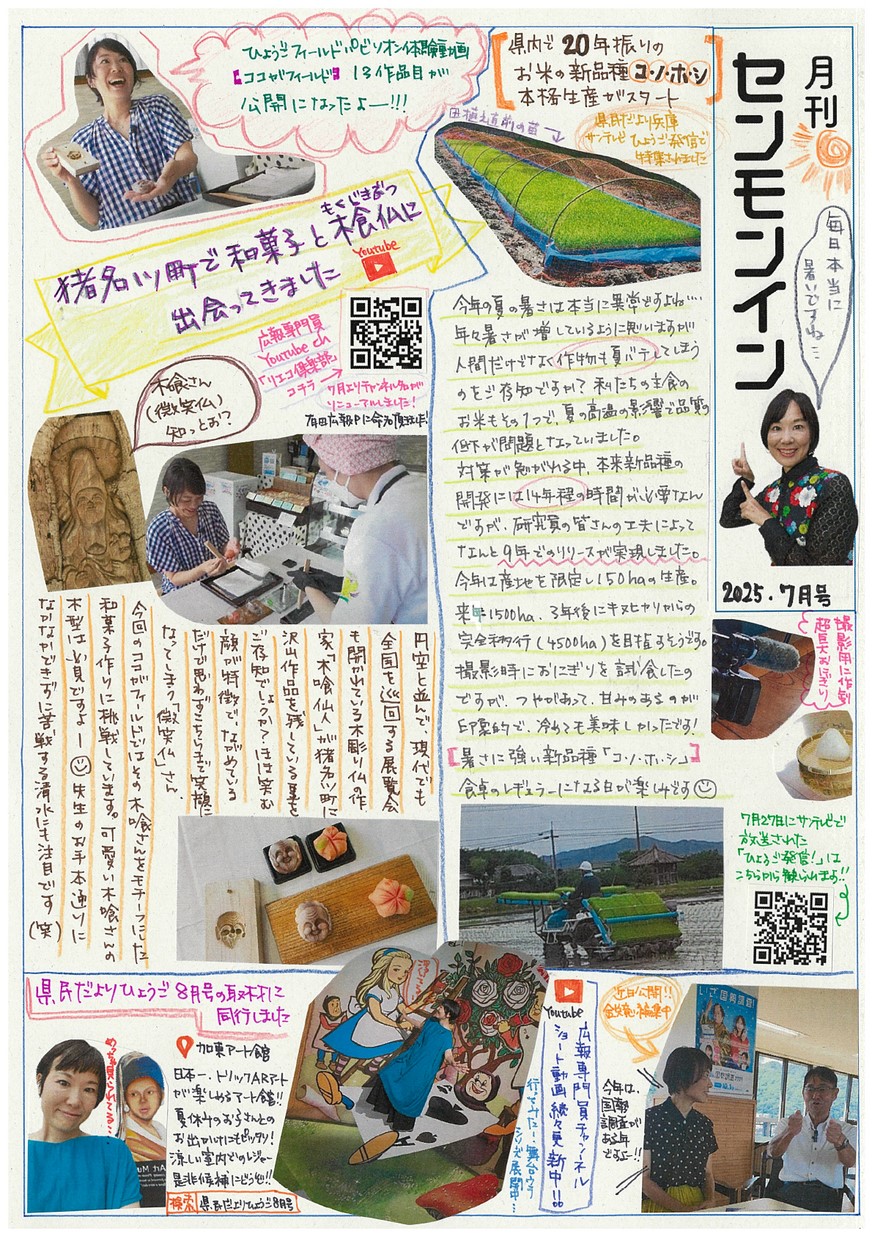 月刊
センモンイン
毎日本当に
暑いですね…
2025・7月号
県内で20年振りの
お米の新品種コ・ノ・ホ・シ
本格生産がスタート
田植え直前の苗
県民だより兵庫
サンテレビひょうご発信で
特集されました
今年の夏の暑さは本当に異常ですよね…
年々暑さが増しているように思いますが
人間だけでなく作物も夏バテしてしまう
のをご存知ですか？私たちの主食の
お米もその1つで、夏の高温の影響で品質の
低下が問題となっていました。
対策が知がれる中、本来新品種の
開発には14年程の時間が必要なん
ですが、研究員の皆さんの工夫によって
なんと9年でのリリースが実現しました。
今年は産地を限定し150haの生産。
来年1500ha、3年後にキヌヒカリからの
完全移行(4500ha)を目指すそうです。
撮影時におにぎりを試食したの
ですが、つやがあって、甘みのあるのが
印象的で、冷めても美味しかったです！
【暑さに強い新品種「コ・ノ・ホ・シ」】
食卓のレギュラーになる日が楽しみです
撮影用に作製
超巨大おにぎり
7月27日にサンテレビで
放送された
「ひょうご発信！」は
こちらから観られます!!
ひょうごフィールドパビリオン体験動画
【ココがフィールド】13作品目が
公開になったよー!!!
もくじきぶつ
猪名川町で和菓子と木喰仏に
出会ってきました
Youtube
広報専門員
Youtube ch
「リエコ倶楽部」
コチラ
7月よりチャンネル名が
リニューアルしました！
有田広報Pに命名頂きました！
木喰さん
(微笑仏)
知っとお？
円空と並んで、現代でも
全国を巡回する展覧会
も開かれている木彫り仏の作
家"木喰仙人"が猪名川町に
沢山作品を残している事を
ご存知でしょうか？ほほ笑む
顔が特徴で、ながめている
だけで思わずこちらまで笑顔に
なってしまう「微笑仏」さん。
今回のココがフィールドではその木喰さんをモチーフにした
和菓子作りに挑戦しています。可愛い木喰さんの
木型は必見ですよー 先生のお手本通りに
なかなかできずに苦戦する清水にも注目です(笑)
県民だよりひょうご8月号の取材に
同行しました
めっちゃ見られてる…
加東アート館
日本一、トリックARアート
が楽しめるアート館!!
夏休みのお子さんとの
お出かけにもピッタリ！
涼しい室内でのレジャー
是非候補にどうぞ!!
検索 県民だよりひょうご8月号
Art Mu
Youtube
広報専門員チャンネル
ショート動画続々更新中!!
行ってみた！舞台ウラ
シリーズ展開中…
近日公開!!
鋭意編集中
今年は、
国勢
調査が
ある年
ですよー!!
国勢調査